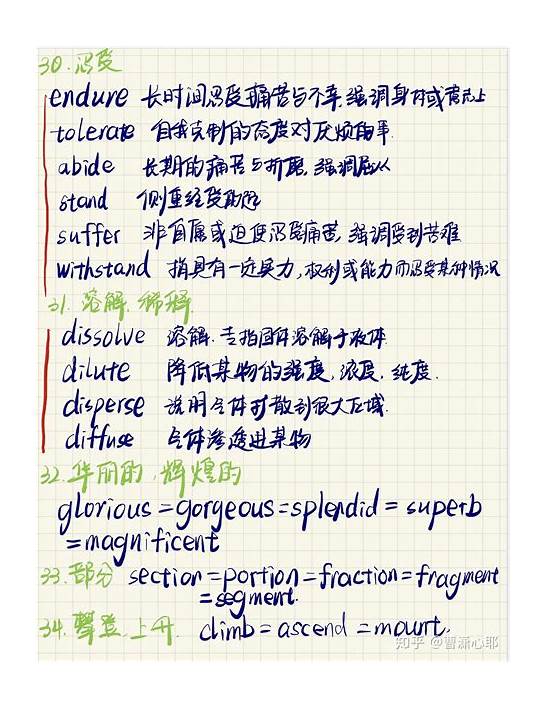 30.忍受
endure 长时间忍受痛苦与不幸,强调身体或意志上
tolerate 自我克制的态度对厌烦的事
abide 长期的痛苦与折磨,强调屈从
stand 侧重经受
suffer 非自愿或迫使忍受痛苦,强调受到苦难
withstand 指具有一定实力,权利或能力而忍受某种情况
31.溶解.稀释.
dissolve 溶解.专指固体溶解于液体.
dilute 降低某物的强度,浓度,纯度.
disperse 说明气体扩散到很大区域.
diffuse 气体渗透进某物
32.华丽的,辉煌的
glorious=gorgeous=splendid=superb
=magnificent
33.部分 section=portion=fraction=fragment
=segment.
34.攀登.上升. climb=ascend=mount.
知乎 @曹潇心耶